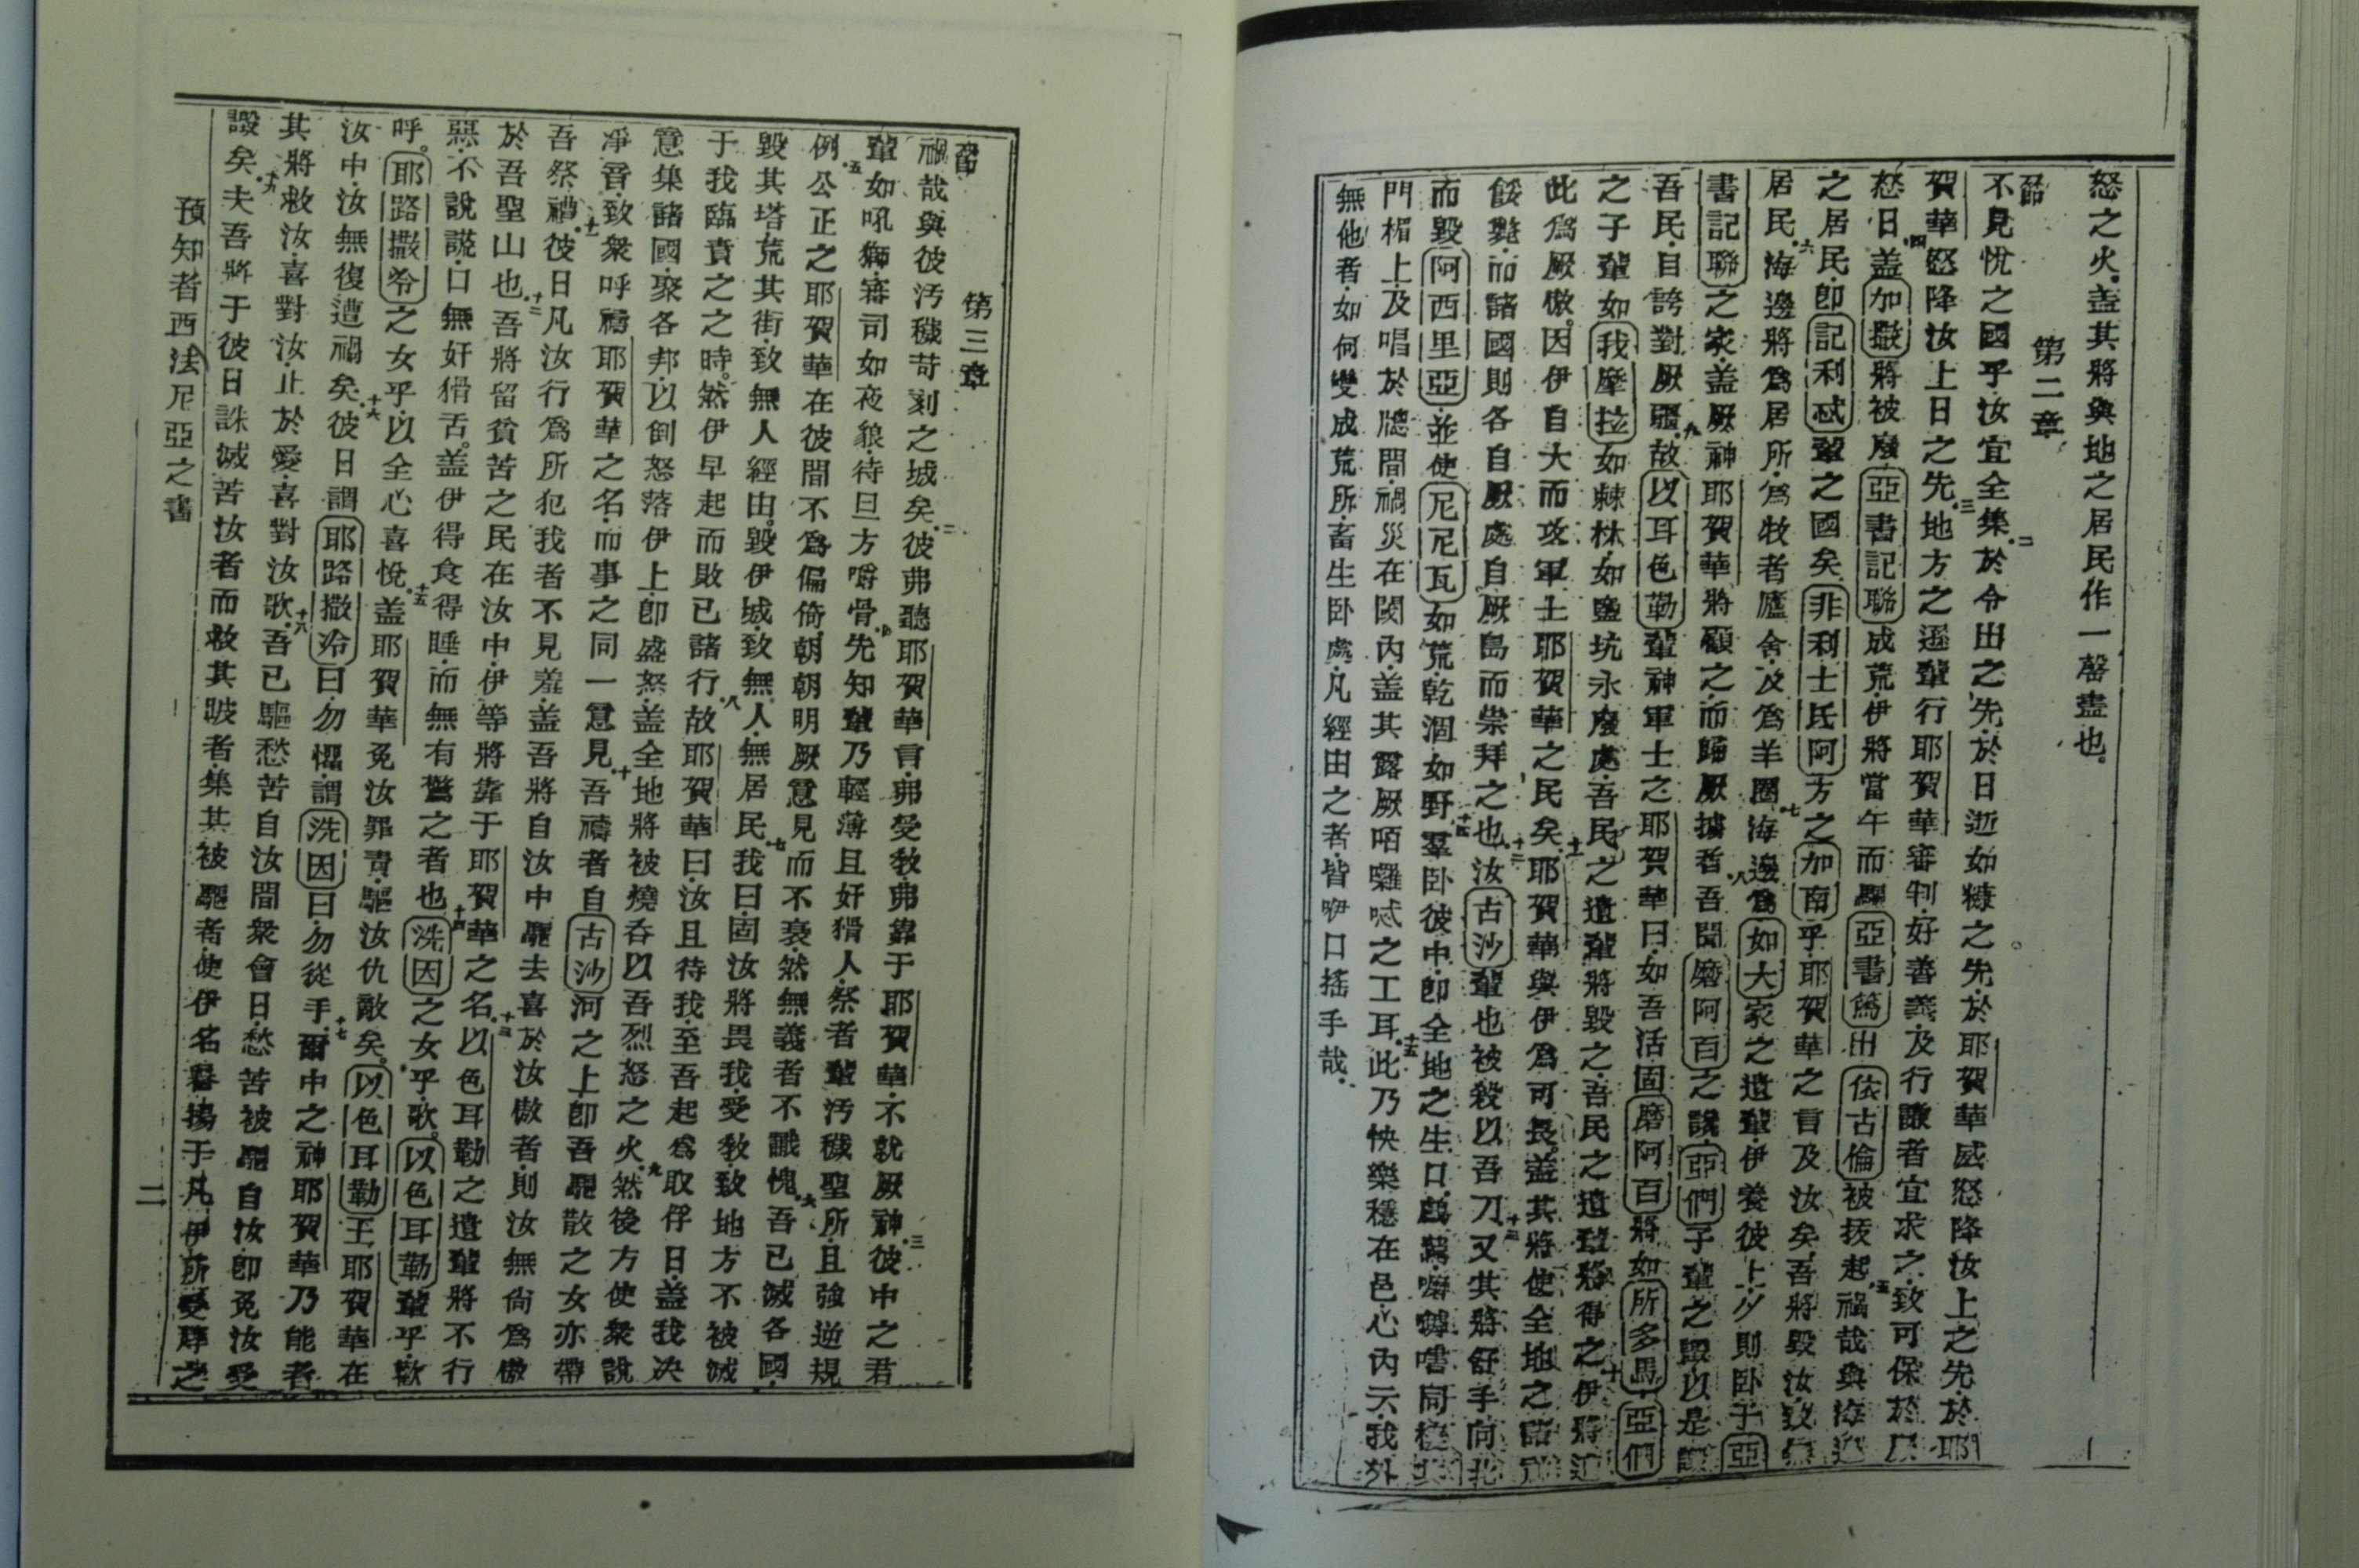 怒之火盖其將與地之居民作一磬盡也
第二章
不見悅之國乎汝宜全集於令出之先於日逝如糠之先於耶賀華威怒降汝上之先於耶
二
賀華怒降汝上日之先地方之遜輩行耶賀華審判好善義及行謙者宜求之致可保於厥
三
怒日盖加撒將被廢亞書記聯成荒伊將當午而驅亞書篤出依古倫被抜起禍哉與海邊
四 五
之居民卽記利忒輩之國矣非利士氏阿方之加南乎耶賀華之言及汝矣吾將毀汝致無
居民海邊將為居所為牧者廬舍及為羊圈海邊為如大家之遺輩伊養彼上夕則卧于亞
六 七
書記聯之家盖厥神耶賀華將顧之而歸厥擄者吾聞磨阿百之謗亞們子輩之詈以是謗
八
吾民自誇對厥疆故以耳色勒輩神軍士之耶賀華曰如吾活固磨阿百將如所多馬亞們
九
之子輩如我摩拉如棘林如鹽坑永廢處吾民之遺輩將毀之吾民之遺輩將得之伊將逅
十
此為厥傲因伊自大而攻軍士耶賀華之民矣耶賀華與伊為可長盖其將使全地之諸神
十一
餒斃而諸國則各自厥處自厥島而崇拜之也汝古沙輩也被殺以吾刀又其將舒手向北
十二 十三
而毀阿西里亞並使尼尼瓦如荒乾涸如野羣卧彼中卽全地之生口
十四
門楣上及唱於牕間禍災在閾内盖其露厥栢之工耳此乃快樂穩在邑心内云我外
十五
無他者如何變成荒所畜生卧處凡經由之者皆咿口搖手哉
第三章
禍哉與彼汚穢苛刻之城矣彼弗聽耶賀華言弗受教弗靠于耶賀華不就厥神彼中之君
二 三
輩如吼獅審司如夜狼待旦方嚼骨先知輩乃輕薄且奸猾人祭者輩汚穢聖所且強逆規
四
例公正之耶賀華在彼間不為偏倚朝朝明厥意見而不衰然無義者不識愧吾已滅各國
五 六
毀其塔荒其街致無人經由毀伊城致無人無居民我曰固汝將畏我受教致地方不被滅
七
于我臨責之之時然伊早起而敗已諸行故耶賀華曰汝且待我至吾起為取俘日盖我决
八
意集諸國聚各邦以倒怒落伊上卽盛怒盖全地將被燒呑以吾烈怒之火然後方使衆說
九
凈音致衆呼禱耶賀華之名而事之同一意見吾禱者自古沙河之上卽吾驅散之女亦帶
十
吾祭禮彼日凡汝行為所犯我者不見羞盖吾將自汝中驅去喜於汝傲者則汝無尙為傲
十一
於吾聖山也吾將留貧苦之民在汝中伊等將靠于耶賀華之名以色耳勒之遺輩將不行
十二 十三
惡不說謊口無奸猾舌盖伊得食得睡而無有驚之者也洗因之女乎歌以色耳勒輩乎歡
十四
呼耶路撒冷之女乎以全心喜悅盖耶賀華免汝罪責驅汝仇敵矣以色耳勒王耶賀華在
十五
汝中汝無復遭禍矣彼日謂耶路撒冷曰勿懼謂洗因曰勿從手爾中之神耶賀華乃能者
十六 十七
其將救汝喜對汝止於愛喜對汝歌吾已驅愁苦自汝間衆會日愁苦被驅自汝卽免汝受
十八
譭矣夫吾將于彼日誅滅苦汝者而救其跛者集其被驅者使伊名譽揚于凡伊所受辱之
十九
預知者西法尼亞之書
二